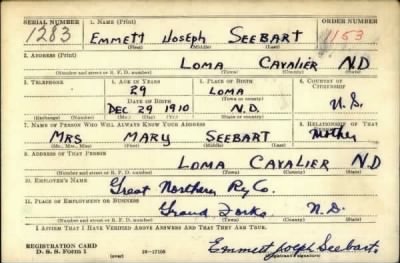 SERIAL NUMBER 1. NAME (Print) ORDER NUMBER
1283 EMMETT JOSEPH SEEBART 1153
(First) (Middle) (Last)
2. ADDRESS (Print)
LOMA CAVALIER N.D
(Number and street or R. F. D. number) (Town) (County) (State)
3. TELEPHONE 4. AGE IN YEARS 5. PLACE OF BIRTH 6. COUNTRY OF CITIZENSHIP
29 LOMA
(Town or county)
DATE OF BIRTH
DEC 29 1910 N.D. U.S.
(Exchange) (Number) (Mo.) (Day) (Yr.) (State or country)
7. NAME OF PERSON WHO WILL ALWAYS KNOW YOUR ADDRESS 8. RELATIONSHIP OF THAT PERSON
MRS MARY SEEBART Mother
(Mr., Mrs., Miss) (First) (Middle) (Last)
9. ADDRESS OF THAT PERSON
LOMA CAVALIER N D
(Number and street or R. F. D. number) (Town) (County) (State)
10. EMPLOYER'S NAME
Great Northern Ry Co.
11. PLACE OF EMPLOYMENT OR BUSINESS
Grand Forks N.D.
(Number and street or R. F. D. number) (Town) (County) (State)
I AFFIRM THAT I HAVE VERIFIED ABOVE ANSWERS AND THAT THEY ARE TRUE.
REGISTRATION CARD
D. S. S. Form 1 (over) 16—17105 Emmett Joseph Seebart
(Registrant's signature)